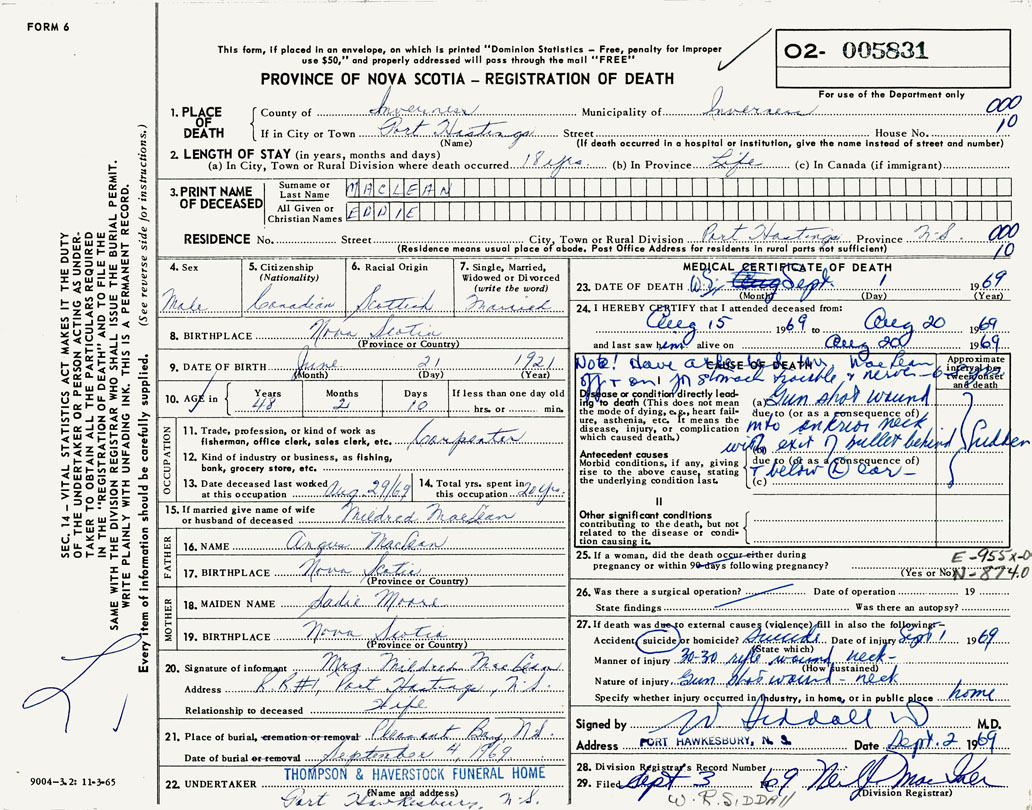 FORM 6
This form, if placed in an envelope, on which is printed "Dominion Statistics – Free, penalty for improper
use $50," and properly addressed will pass through the mail "FREE"
PROVINCE OF NOVA SCOTIA – REGISTRATION OF DEATH
O2- 005831
For use of the Department only
1. PLACE OF DEATH
County of Inverness Municipality of Inverness 000
If in City or Town Port Hastings Street House No. 10
(Name) (If death occurred in a hospital or institution, give the name instead of street and number)
2. LENGTH OF STAY (in years, months and days)
(a) In City, Town or Rural Division where death occurred 18 yrs (b) In Province Life (c) In Canada (if immigrant)
3. PRINT NAME OF DECEASED
Surname or Last Name MACLEAN
All Given or Christian Names EDDIE
RESIDENCE No. Street City, Town or Rural Division Port Hastings Province N.S. 000
(Residence means usual place of abode. Post Office Address for residents in rural parts not sufficient) 10
4. Sex
Male
5. Citizenship
(Nationality)
Canadian
6. Racial Origin
Scottish
7. Single, Married,
Widowed or Divorced
(write the word)
Married
8. BIRTHPLACE Nova Scotia
(Province or Country)
9. DATE OF BIRTH June 21 1921
(Month) (Day) (Year)
10. AGE in
Years 48
Months 2
Days 10
If less than one day old
hrs. or min.
OCCUPATION
11. Trade, profession, or kind of work as
fisherman, office clerk, sales clerk, etc. Carpenter
12. Kind of industry or business, as fishing,
bank, grocery store, etc.
13. Date deceased last worked
at this occupation Aug. 29/69
14. Total yrs. spent in
this occupation 20 yrs.
15. If married give name of wife
or husband of deceased Mildred MacLean
FATHER
16. NAME Angus MacLean
17. BIRTHPLACE Nova Scotia
(Province or Country)
MOTHER
18. MAIDEN NAME Sadie Moore
19. BIRTHPLACE Nova Scotia
(Province or Country)
20. Signature of informant Mrs Mildred MacLean
Address R.R.#1, Port Hastings, N.S.
Relationship to deceased Wife
21. Place of burial, cremation or removal Pleasant Bay, N.S.
Date of burial or removal September 4, 1969
22. UNDERTAKER THOMPSON & HAVERSTOCK FUNERAL HOME
(Name and address)
Port Hawkesbury, N.S.
MEDICAL CERTIFICATE OF DEATH
23. DATE OF DEATH W.S. Aug Sept. 1 1969
(Month) (Day) (Year)
24. I HEREBY CERTIFY that I attended deceased from:
Aug 15 1969 to Aug 20 1969
and last saw him alive on Aug 20 1969
CAUSE OF DEATH
Approximate
interval between onset
and death
Note! Have MacLean
off & on for stomach trouble & nerves
Disease or condition directly leading to death (This does not mean
the mode of dying, e.g., heart failure, asthenia, etc. It means the
disease, injury, or complication
which caused death.)
(a) Gun shot wound
due to (or as a consequence of)
into anterior neck
Antecedent causes
Morbid conditions, if any, giving
rise to the above cause, stating
the underlying condition last.
(b) with exit of bullet behind
due to (or as a consequence of)
(c) & below L ear –
Sudden
II
Other significant conditions
contributing to the death, but not
related to the disease or condition causing it.
25. If a woman, did the death occur either during
pregnancy or within 90 days following pregnancy?
(Yes or No)
E-955x-0
N-874.0
26. Was there a surgical operation? Date of operation 19
State findings Was there an autopsy?
27. If death was due to external causes (violence) fill in also the following:–
Accident, suicide or homicide? Suicide Date of injury Sept 1 1969
(State which)
Manner of injury 30-30 rifle wound neck –
(How sustained)
Nature of injury Gun shot wound – neck
Specify whether injury occurred in industry, in home, or in public place home
Signed by W Siddall M.D.
Address PORT HAWKESBURY, N. S. Date Sept. 2 1969
28. Division Registrar's Record Number
29. Filed Sept 3 1969
(Division Registrar)
W. R. SIDDALL
SEC. 14 – VITAL STATISTICS ACT MAKES IT THE DUTY
OF THE UNDERTAKER OR PERSON ACTING AS UNDER-
TAKER TO OBTAIN ALL THE PARTICULARS REQUIRED
IN THE "REGISTRATION OF DEATH" AND TO FILE THE
SAME WITH THE DIVISION REGISTRAR WHO SHALL ISSUE THE BURIAL PERMIT.
WRITE PLAINLY WITH UNFADING INK. THIS IS A PERMANENT RECORD.
Every item of information should be carefully supplied. (See reverse side for instructions.)
9004-3.2: 11-3-65